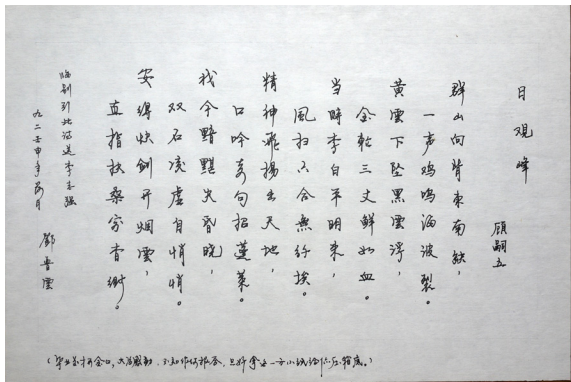 日观峰
顾嗣立
群山向背東南缺，
一声鸡鸣海波裂。
黄雲下坠黑雲浮，
金轮三丈鲜如血。
当時李白平明来，
風扫六合無纤埃。
精神飛揚出天地，
口吟奇句招蓬莱。
我今黯黮失昏晓，
双石凌虚自悄悄。
安得快剑开烟雲，
直指扶桑穷杳渺。
临别 此诗送李志强
九二壬申年 月